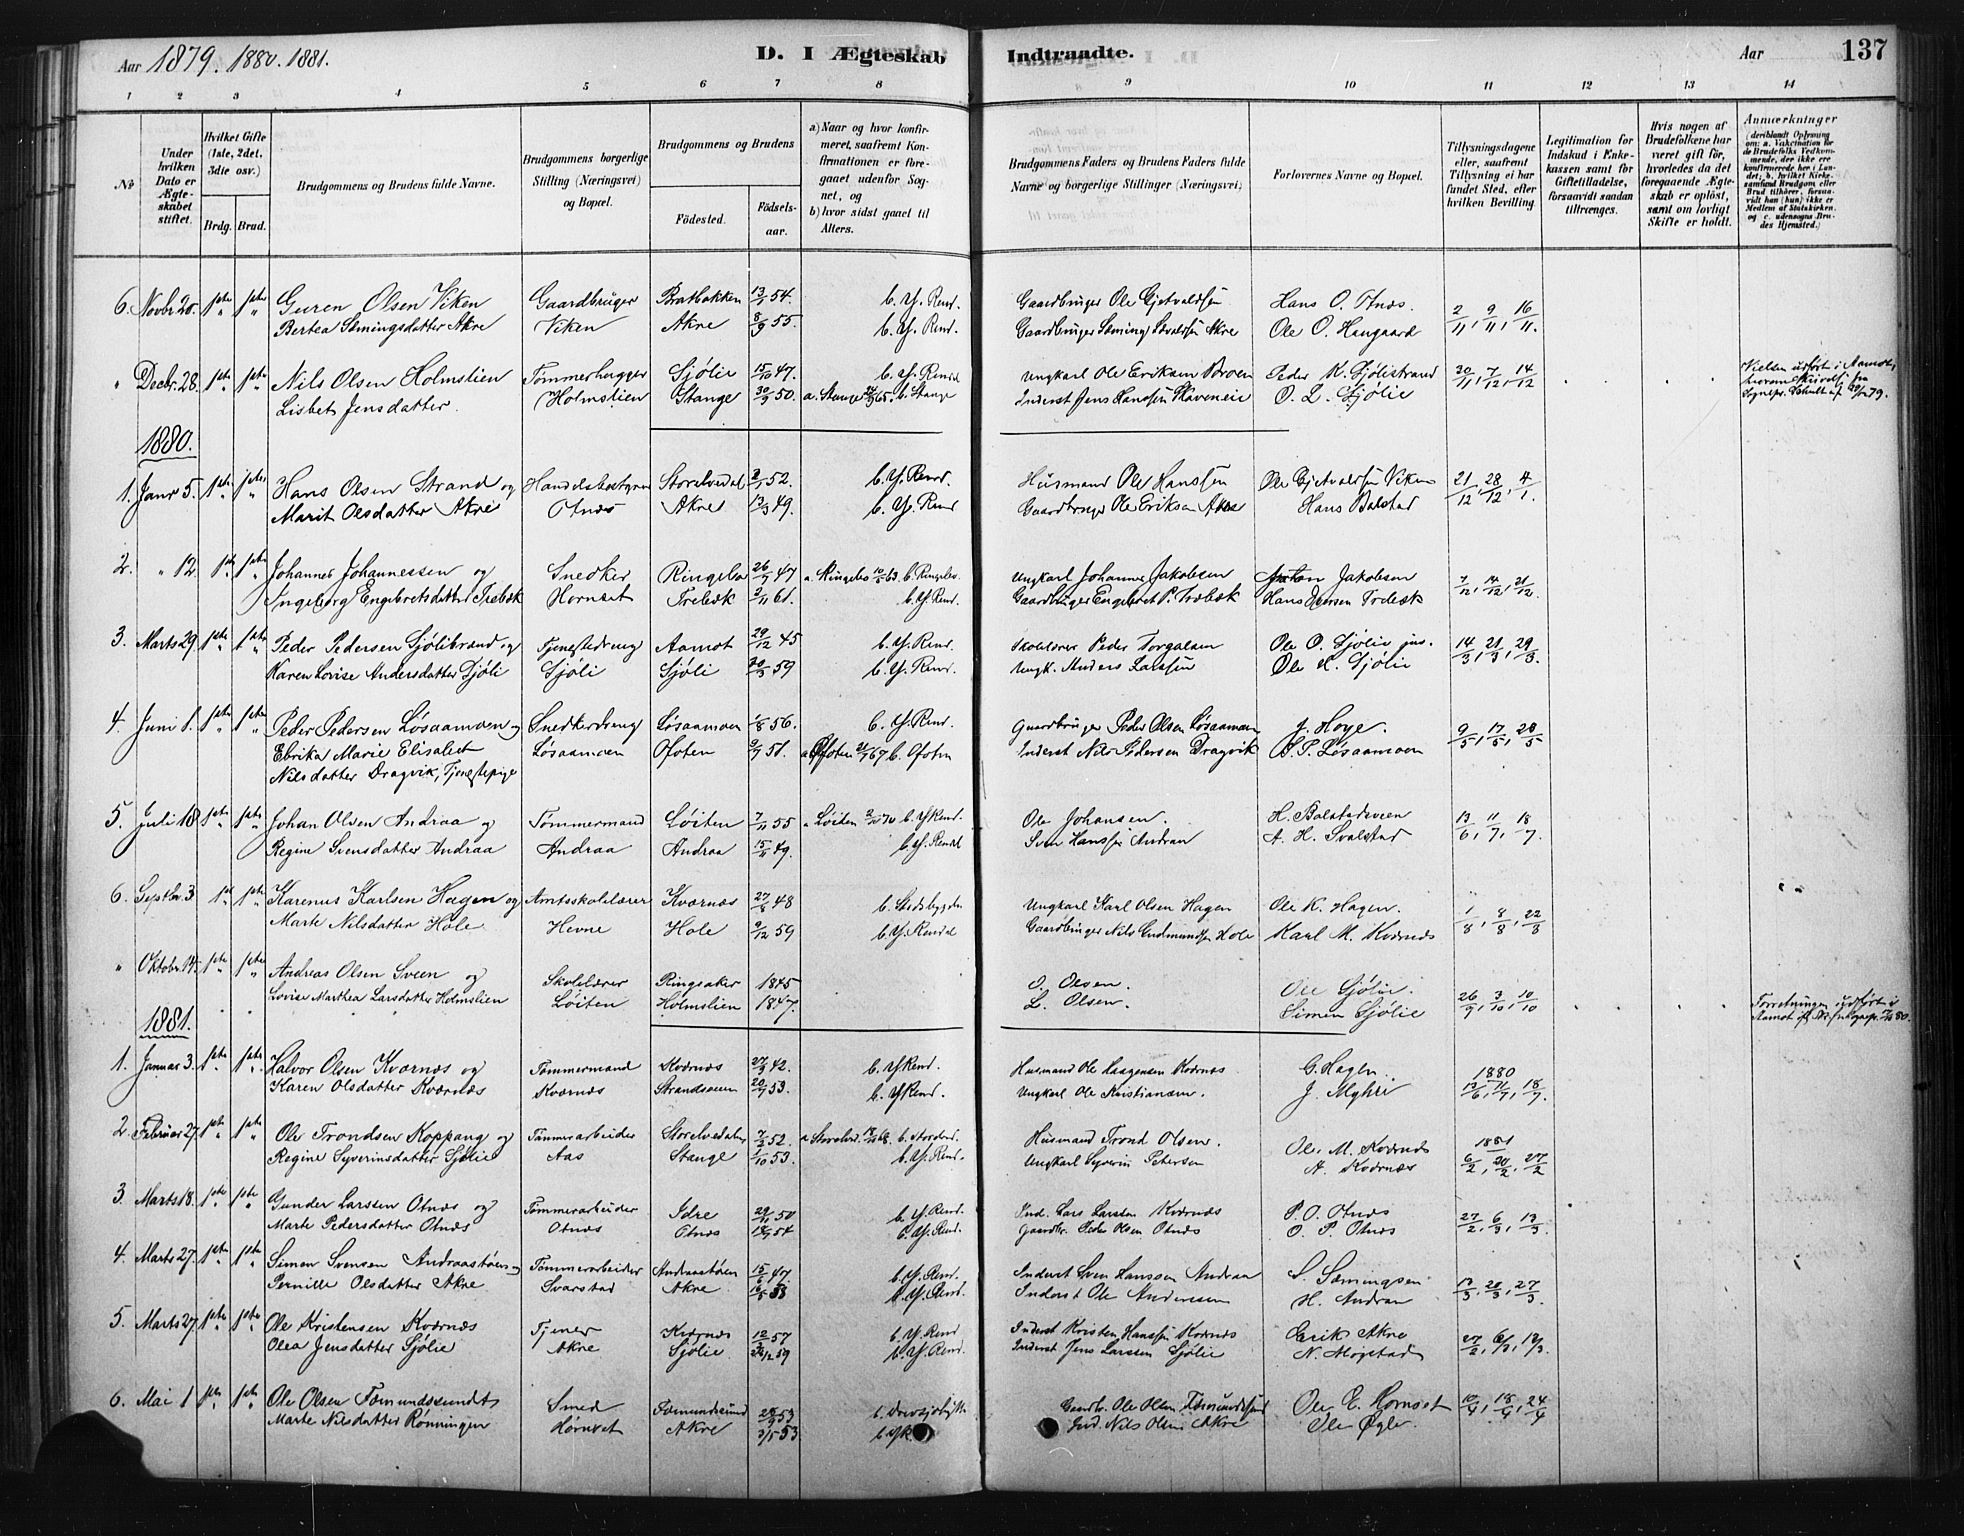 Aar 1879. 1880. 1881.
D. I Ægteskab Indtraadte.
Aar 137
1 2 3 4 5 6 7 8 9 10 11 12 13 14
No
Under hvilken Dato er Ægteskabet stiftet.
Hvilket Gifte (1ste, 2det, 3die osv.)
Brdg. Brud.
Brudgommens og Brudens fulde Navne.
Brudgommens borgerlige Stilling (Næringsvei) og Bopæl.
Brudgommens og Brudens
Fødested. Fødselsaar.
a) Naar og hvor konfirmeret, saafremt Konfirmationen er foregaaet udenfor Sognet, og
b) hvor sidst gaaet til Alters.
Brudgommens Faders og Brudens Faders fulde Navne og borgerlige Stillinger (Næringsvei)
Forlovernes Navne og Bopæl.
Tillysningsdagene eller, saafremt Tillysning ei har fundet Sted, efter hvilken Bevilling.
Legitimation for Indskud i Enkekassen samt for Giftetilladelse, forsaavidt saadan tiltrænges.
Hvis nogen af Brudefolkene har været gift før, hvorledes da det foregaaende Ægteskab er opløst, samt om lovligt Skifte er holdt.
Anmærkninger
6. Novbr 20. 1ste 1ste Guren Olsen Viken Gaardbruger Bratbakken 13/1 54. b. Y. Rend. Gaardbruger Ole Gjetvaldsen Hans O. Otnæs 2/11, 9/11, 16/11.
Bertea Semingsdatter Akre Viken Akre 8/9 55. b. Y. Rend. Gaardbruger Seming Akre Ole O. Haugaard
" Decbr. 28. 1ste 1ste Nils Olsen Holmslien Tømmerhugger Sjølie 15/10 47. b. Y. Rendal Ungkarl Ole Eriksen Moroen Peder K. Sjølistrand 30/11, 7/12, 14/12
Lisbet Jensdatter. Holmslien Stange 30/3 50. a. Stange 65. b. Stange Inderst Jens Hanssen O. L. Sjølie
Vielsen udført i Aamot,
1880.
1. Janr 5. 1ste 1ste Hans Olsen Strand og Handelsbestyrer Storelvedal 52. b. Y. Rend. Husmand Ole Hanssen Ole Gjetvaldsen Viken 21/12, 28/12, 4/1.
Marit Olsdatter Akre Otnæs Akre 13/3 49. b. Y. Rend Gaardbruger Ole Eriksen Akre Hans Balstad
2. " 12. 1ste 1ste Johannes Johannessen og Snedker Ringebo 26/7 47 a. Ringebo 63. b. Ringebo. Ungkarl Johannes Jakobsen Anton Jakobsen 7/12, 14/12, 21/12.
Ingeborg Engebretsdatter Trebæk Hornset Trebæk 2/11 61. b. Y. Rend. Gaardbruger Engebret P. Trebæk Hans Iversen Trebæk
3. Marts 29. 1ste 1ste Peder Pedersen Sjølibrænd og Tjenestedreng Aamot 29/12 45 b. Y. Rend. Skolelærer Peder Torgalsen Ole O. Sjølie jun. 14/3, 21/3, 29/3.
Karen Lovise Andersdatter Sjøli Sjøli Sjøli 20/3 59 b. Y. Rend. Ungk. Anders Larssen Ole K. Sjølie
4. Juni 1. 1ste 1ste Peder Pedersen Løsaamoen og Snedkerdreng Løsaamoen 1/8 56. b. Y. Rend. Gaardbruger Peder Olsen Løsaamoen J. Hoye. 9/5, 17/5, 28/5
Ebrika Marie Elisabet Løsaamoen Ofoten 2/7 51. a. Ofoten 67 b. Ofoten Inderst Nils Pedersen Dragvik O. P. Løsaamoen
Nilsdatter Dragvik, Tjenestepige
5. Juli 18. 1ste 1ste Johan Olsen Andraa og Tømmermand Løiten 7/11 55 a. Løiten 70 b. Y Rend. Ole Johansen. H. Balstadveien 13/6, 11/7, 18/7.
Regine Svensdatter Andraa Andraa Andraa 15/11 49. b. Y. Rendal Sven Hanssen Andraa A. H. Svalstad
6. Septbr. 3. 1st 1ste Karenus Karlsen Hagen og Amtsskolelærer Kværnæs 27/8 48 b. Stedsbygden Ungkarl Karl Olsen Hagen Ole K. Hagen. 1/8, 8/8, 22/8
Marte Nilsdatter Hole Hevne Hole 9/12 59 b. Y. Rendal Gaardbruger Nils Gudmundsen Hole Karl M. Kværnæs
" Oktobr. 14. 1ste 1ste Andreas Olsen Sveen og Skolelærer Ringsaker 1845 O. Olsen. Ole Sjølie. 26/9, 3/10, 10/10
Lovise Marthea Larsdatter Holmslien Løiten Holmslien 1847. L. Olsen. Simen Sjølie
Forretningen udført i
1881.
1. Januar 3. 1ste 1ste. Halvor Olsen Kværnæs og Tømmermand Kværnæs 27/3 42. b. Y Rend. Husmand Ole Haagensen Kværnæs G. Hagen. 1880
Karen Olsdatter Kværnæs Kværnæs Strandveien 20/7 53. b. Y Rend. Ungkarl Ole Kristiansen. J. Myhre 13/6, 11/7, 18/7.
2. Februar 27. 1ste 1ste Ole Trondsen Koppang og Tømmerarbeider Storelvedalen 7/2 52. a. Storelved. 68. b. Storelved. Husmand Trond Olsen. Ole M. Kværnæs 1881
Regine Syverinsdatter Sjølie Aas Stange 1/10 53. b. Y. Rend. Ungkarl Syverin Petersen A. Kværnæs 6/2, 20/2, 27/2
3. Marts 18. 1ste 1ste Gunder Larssen Otnæs og Tømmerarbeider Idre 29/11 50 b. Y. Rend. Ind. Lars Larssen Kværnæs P. O. Otnæs 27/2, 6/3, 13/3.
Marte Pedersdatter Otnæs Otnæs Otnæs 54 b. Y. Rend. Gaardbr. Peder Olsen Otnæs O. P. Otnæs
4. Marts 27. 1ste 1ste Simen Svensen Andraastøen og Tømmerarbeider Andraastøen 15/6 47 b. Y. Rend. Inderst Sven Hanssen Andraa S. Sæmingsen 13/3, 20/3, 27/3.
Pernille Olsdatter Akre Svarstad Akre 53 b. Y. Rend. Inderst Ole Anderssen H. Andraa
5. Marts 27. 1ste 1ste Ole Kristensen Kværnæs Tjener Kværnæs 57 b. Y. Rend Inderst Kristen Hanssen Kværnæs Erik Akre 27/2, 6/3, 13/3.
Olea Jensdatter Sjølie Akre Sjølie 59 b. Y. Rend. Inderst Jens Larssen Sjølie N. Mogstad
6. Mai 1 1ste 1ste Ole Olsen Fæmundssundet Smed Fæmundsund 53 b. Drevsjøhytte Gaardbr. Ole Olsen Fæmundssund Ole E. Hornset 10/4, 18/4, 24/4
Marte Nilsdatter Rønningen Hornset Akre 3/5 53 b Y R Ind. Nils Olsen Akre Ole Øgle